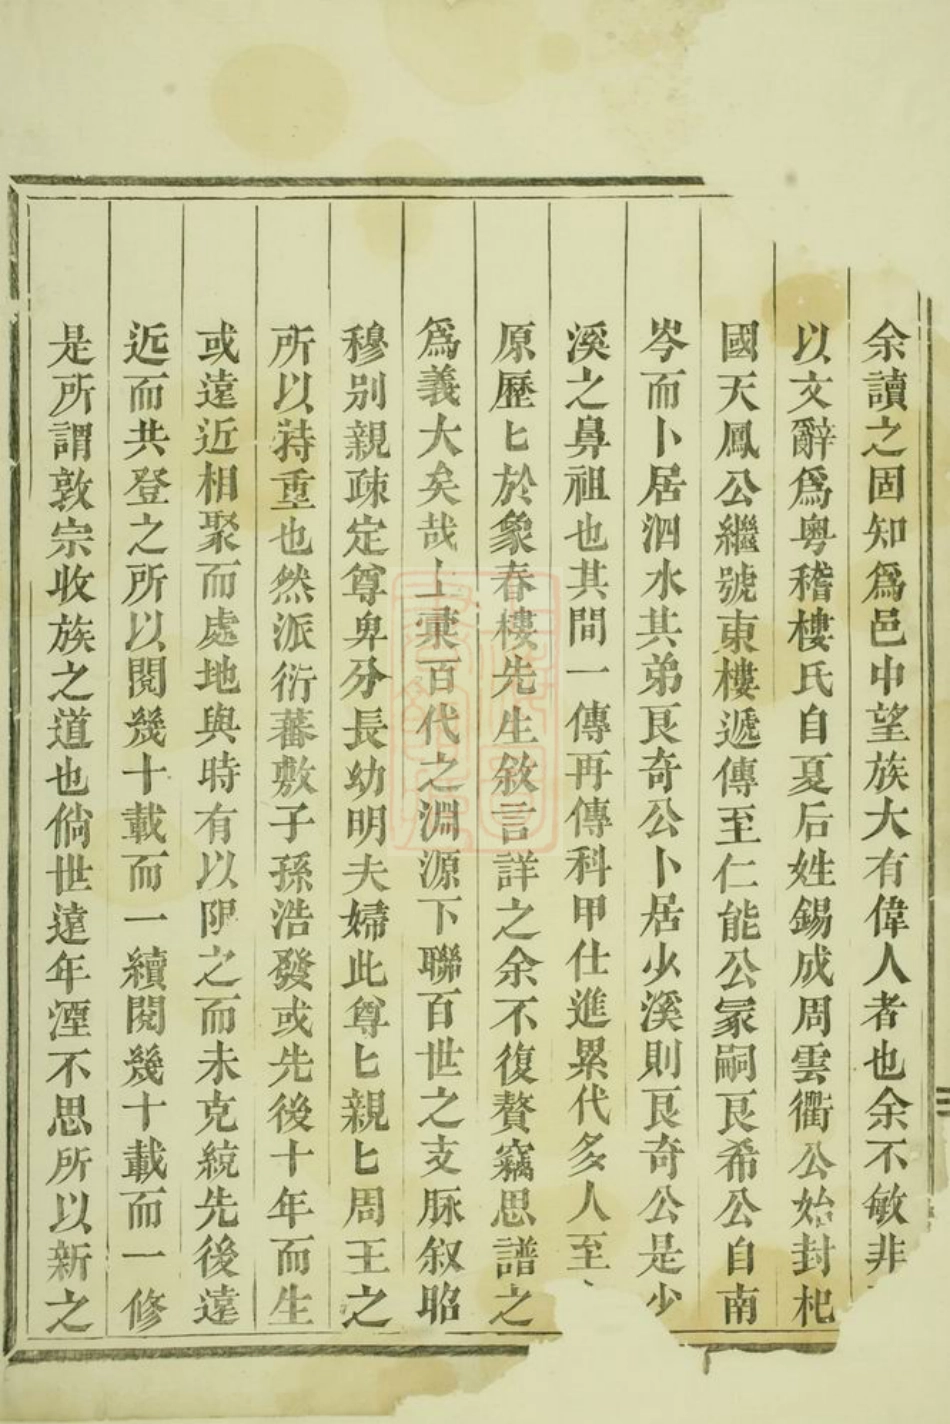 余讀之固知爲邑中望族大有偉人者也余不敏非
以文辭爲粤稽樓氏自夏后姓錫成周雲衢公始封杞
國天鳳公繼號東樓遞傳至仁能公冢嗣艮希公自南
岑而卜居泗水其弟艮奇公卜居少溪則艮奇公是少
溪之鼻祖也其間一傳再傳科甲仕進累代多人至
原歷匕於象春樓先生敘言詳之余不復贅竊思譜之
爲義大矣哉上彙百代之淵源下聯百世之支脉叙昭
穆別親疎定尊卑分長幼明夫婦此尊匕親匕周王之
所以特重也然派衍蕃敷子孫浩發或先後十年而生
或遠近相聚而處地與時有以限之而未克統先後遠
近而共登之所以閱幾十載而一續閱幾十載而一修
是所謂敦宗收族之道也倘世遠年湮不思所以新之